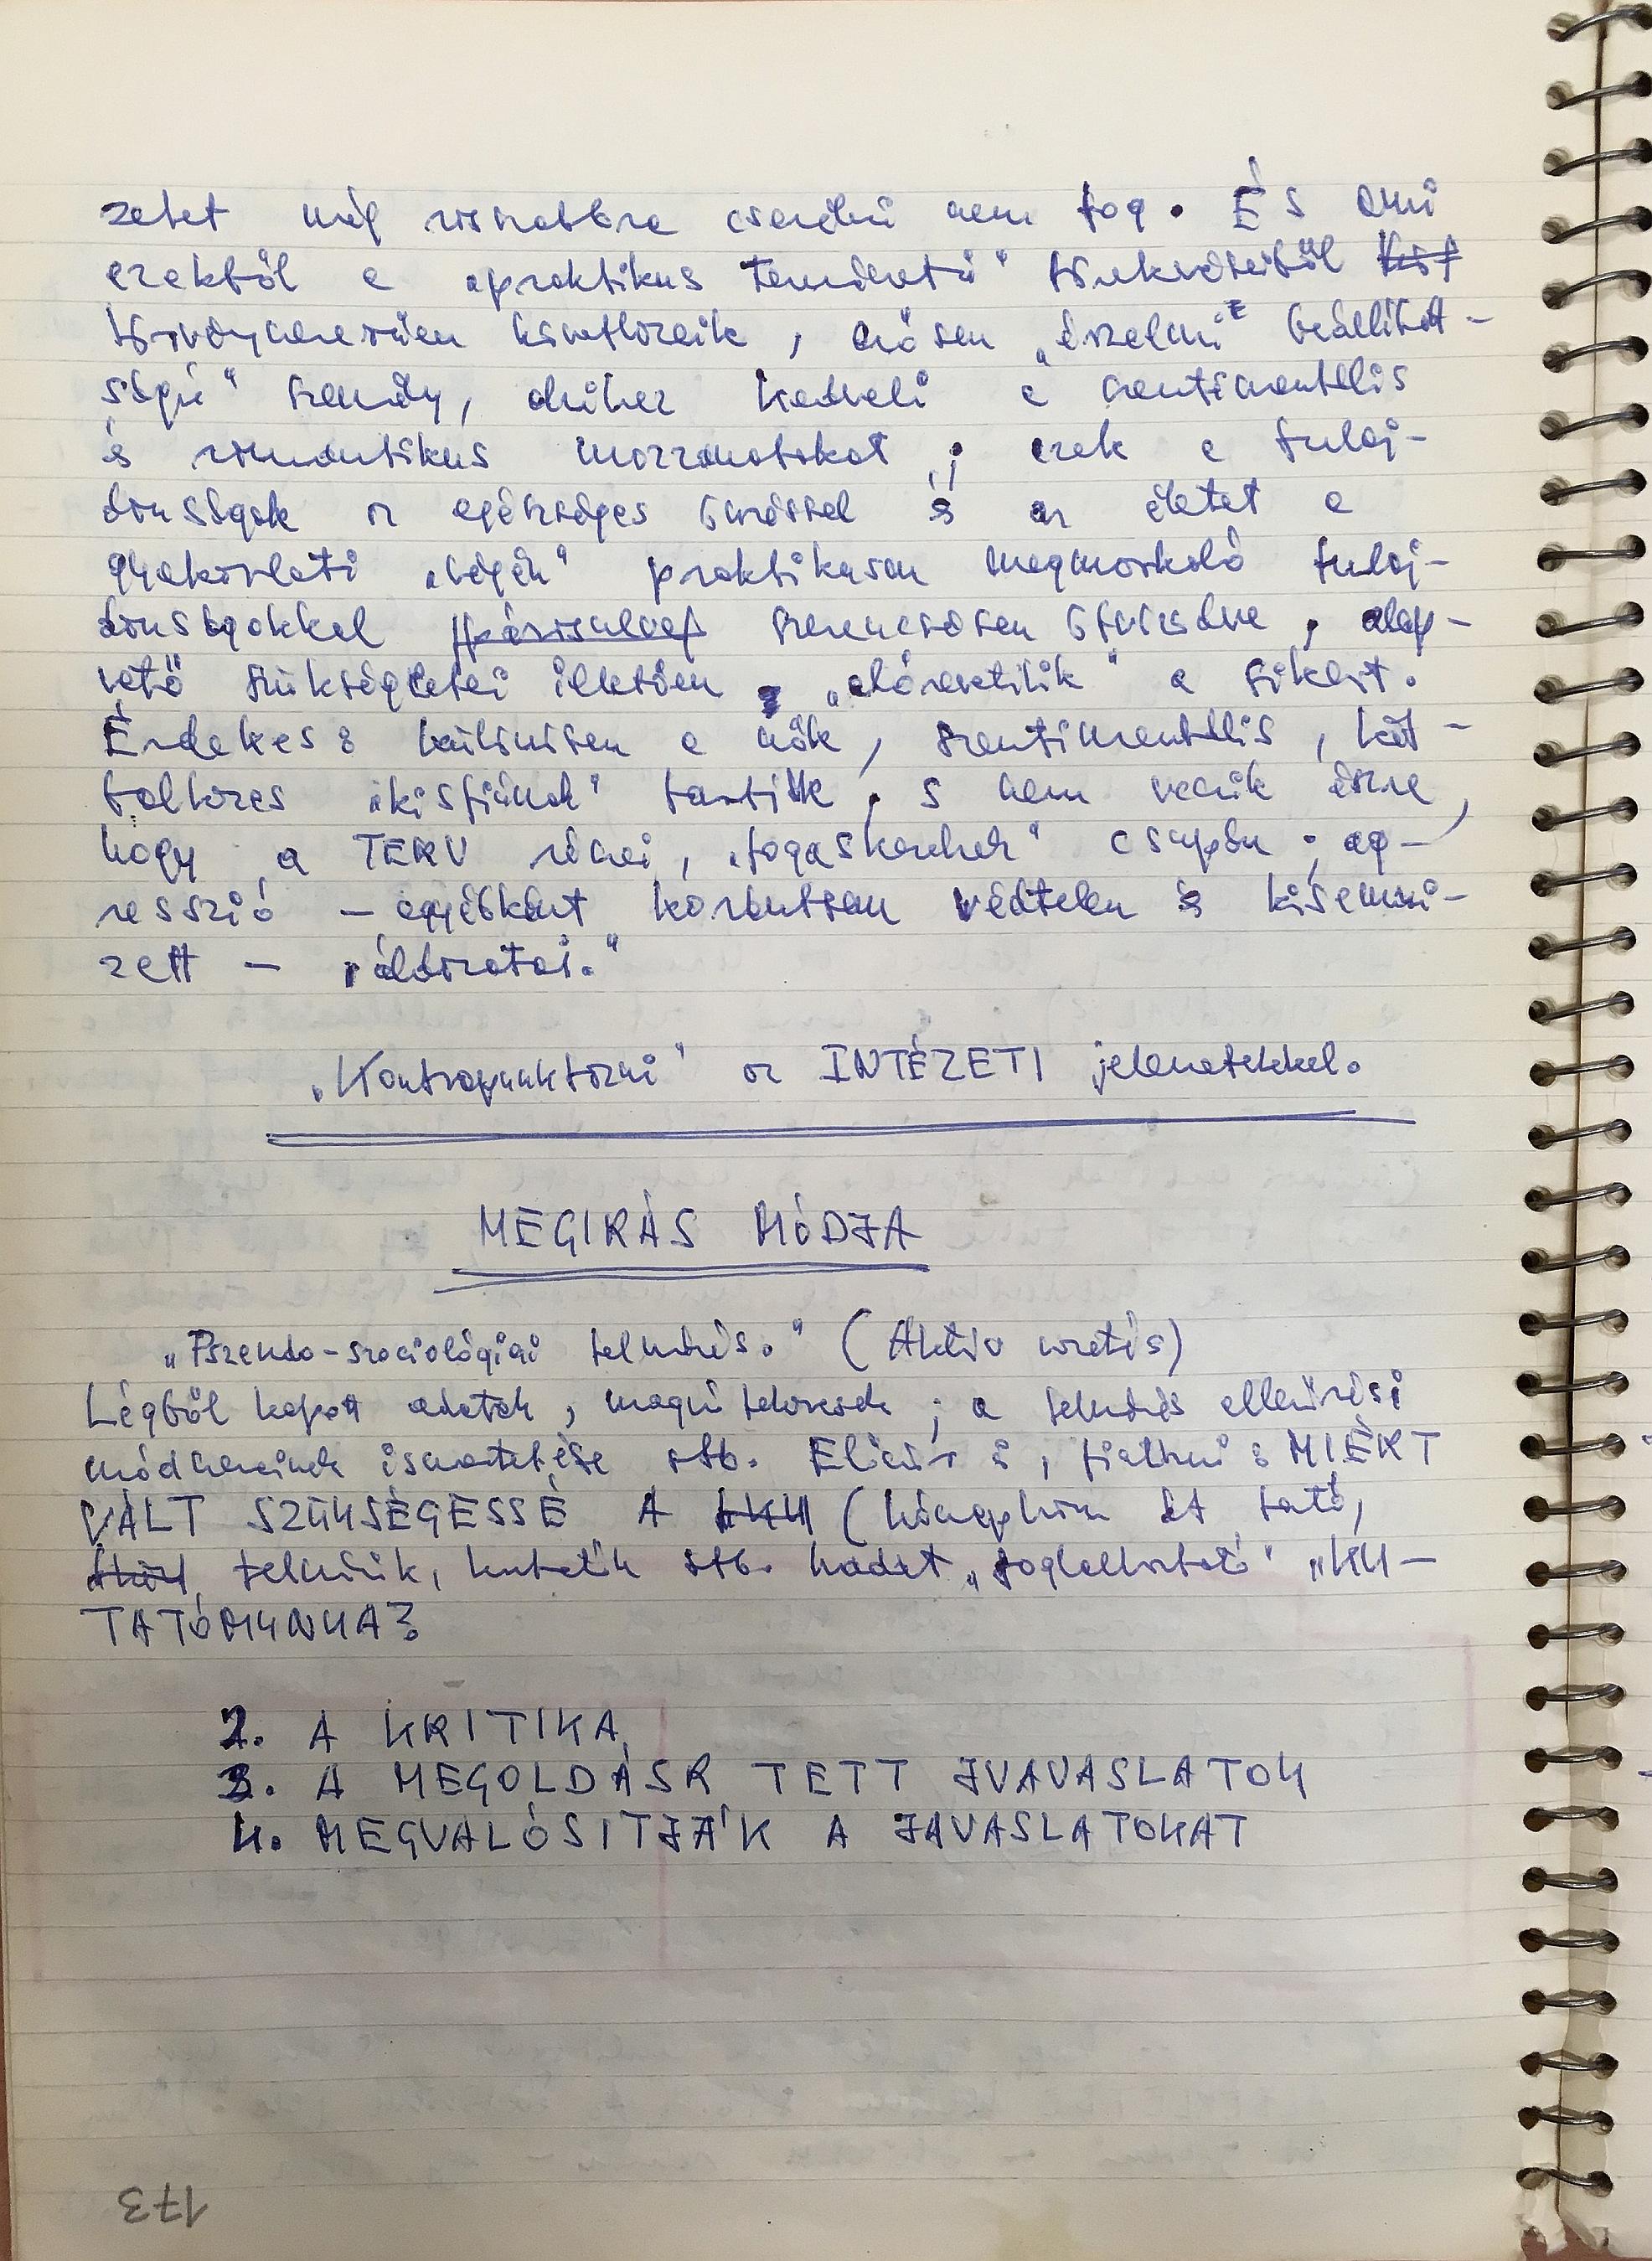 zetet még rosszabbra cserélni nem fog. És ami
ezekből a „praktikus természetű" törekvéseiből
törvényszerűen következik, erősen „érzelmi" beállított-
ságú" személy, akihez kedveli a szentimentális
és romantikus mozzanatokat; ezek a tulaj-
donságok az egészséges önzéssel és az életet a
gyakorlati „végén" praktikusan megmarkoló tulaj-
donságokkal szerencsésen ötvöződve, alap-
vető szükségletei illetően, „előrevetítik" a sikert.
Érdekes: különösen a nők, szentimentális, két-
balkezes „kisfiúnak" tartják, s nem veszik észre,
hogy a TERV részei, „fogaskerekek" csupán; ag-
resszió – egyébként korántsem védtelen és kisemmi-
zett – áldozatai."
„Kontrapunktozni" az INTÉZETI jelenetekkel.
MEGIRÁS MÓDJA
„Pszeudo-szociológiai felmérés." (Aktív
Légből kapott adatok, ; a felmérés ellenőrzési
módszereinek ismertetése stb. : MIÉRT
VÁLT SZÜKSÉGESSÉ A (hónapokon át tartó,
felmérők, kutatók stb. hadát „foglalkoztató" „KU-
TATÓMUNKA?
2. A KRITIKA
3. A MEGOLDÁSR TETT JVAVASLATOK
4. MEGVALÓSITJÁK A JAVASLATOKAT
173